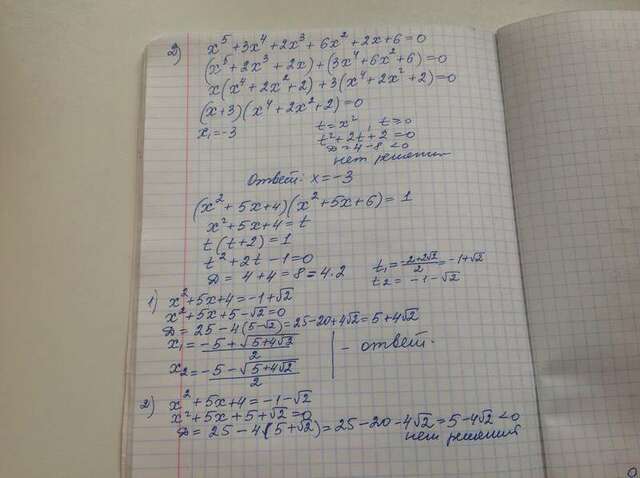 2) x⁵+3x⁴+2x³+6x²+2x+6=0
(x⁵+2x³+2x)+(3x⁴+6x²+6)=0
x(x⁴+2x²+2)+3(x⁴+2x²+2)=0
(x+3)(x⁴+2x²+2)=0
x₁=-3
t=x², t≥0
t²+2t+2=0
D=4-8<0
нет решения
Ответ: x=-3
(x²+5x+4)(x²+5x+6)=1
x²+5x+4=t
t(t+2)=1
t²+2t-1=0
D=4+4=8=4·2
t₁=(-2+2√2)/2=-1+√2
t₂=-1-√2
1) x²+5x+4=-1+√2
x²+5x+5-√2=0
D=25-4(5-√2)=25-20+4√2=5+4√2
x₁=(-5+√(5+4√2))/2
x₂=(-5-√(5+4√2))/2
- ответ.
2) x²+5x+4=-1-√2
x²+5x+5+√2=0
D=25-4(5+√2)=25-20-4√2=5-4√2<0
нет решения